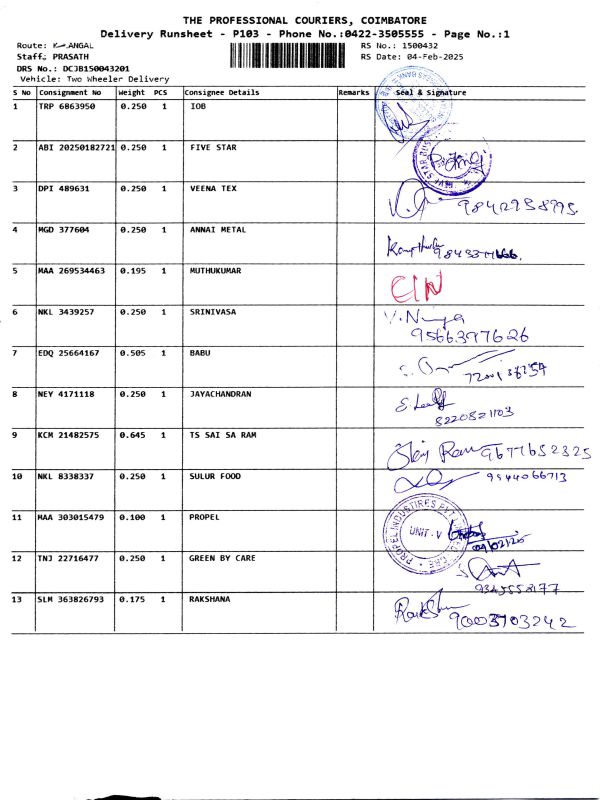 THE PROFESSIONAL COURIERS, COIMBATORE
Delivery Runsheet - P103 - Phone No.:0422-3505555 - Page No.:1
Route: ANGAL RS No.: 1500432
Staff: PRASATH RS Date: 04-Feb-2025
DRS No.: DCJB1500043201
Vehicle: Two Wheeler Delivery
S No Consignment No Weight PCS Consignee Details Remarks Seal & Signature
1 TRP 6863950 0.250 1 IOB
2 ABI 20250182721 0.250 1 FIVE STAR
3 DPI 489631 0.250 1 VEENA TEX
4 MGD 377604 0.250 1 ANNAI METAL
5 MAA 269534463 0.195 1 MUTHUKUMAR
CIN
6 NKL 3439257 0.250 1 SRINIVASA
9566397626
7 EDQ 25664167 0.505 1 BABU
8 NEY 4171118 0.250 1 JAYACHANDRAN
8220821103
9 KCM 21482575 0.645 1 TS SAI SA RAM
Ram 9677652325
10 NKL 8338337 0.250 1 SULUR FOOD
9944066713
11 MAA 303015479 0.100 1 PROPEL
PROPEL INDUSTRIES PVT
UNIT - V
04/02/25
12 TNJ 22716477 0.250 1 GREEN BY CARE
13 SLM 363826793 0.175 1 RAKSHANA
9003703242